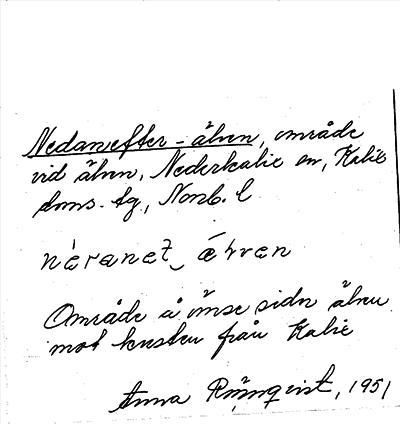 Nedanefter-älven, område
vid älven, Nederkalix sn, Kalix
doms. tg, Norrb. l
nèranet_ ǽrven
Område å ömse sidor älven
mot kusten från Kalix
Anna Rönnqvist, 1951